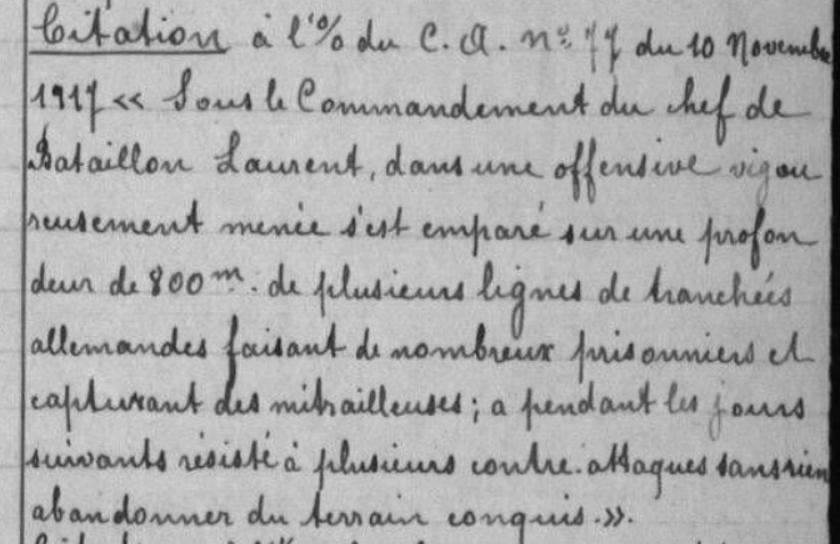 Citation à l'% du C. A. nº 77 du 10 Novembre
1917 << Sous le Commandement du chef de
Bataillon Laurent, dans une offensive vigou
reusement menée s'est emparé sur une profon
deur de 800m. de plusieurs lignes de tranchées
allemandes faisant de nombreux prisonniers et
capturant des mitrailleuses; a pendant les jours
suivants résisté à plusieurs contre-attaques sans rien
abandonner du terrain conquis.>>.